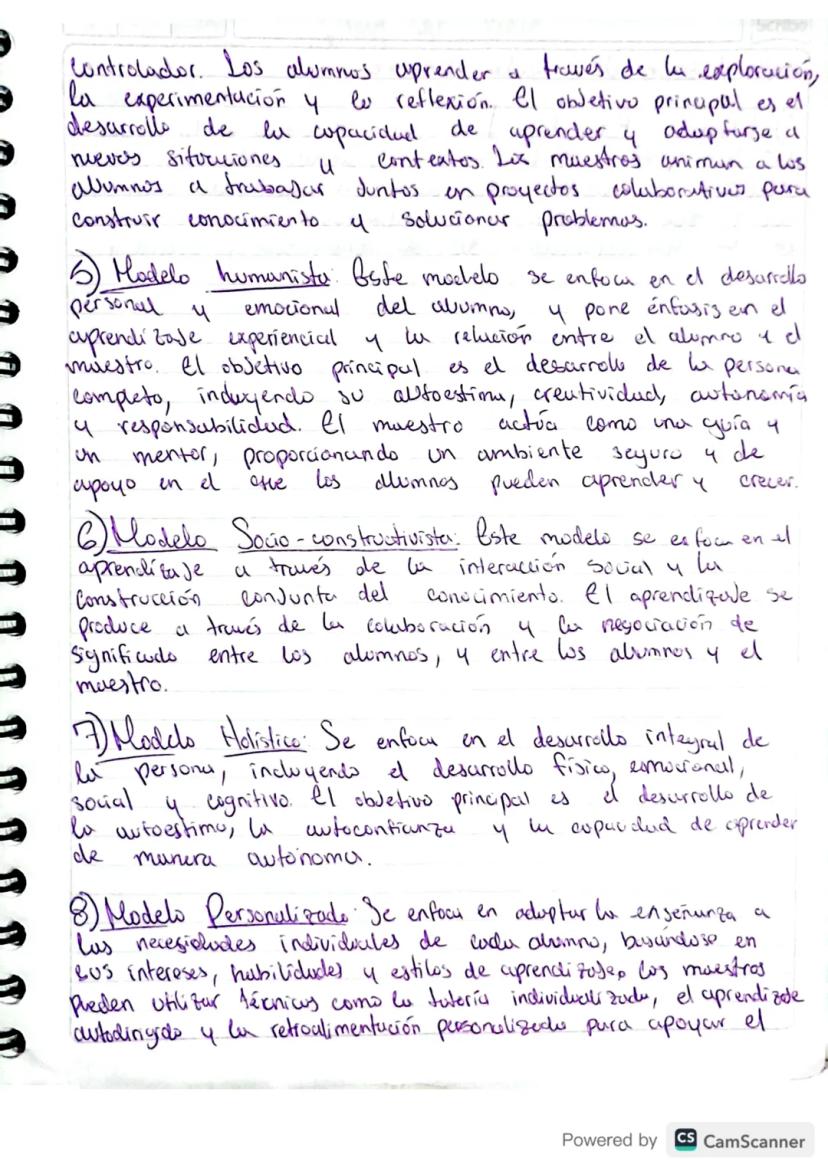 controlador. Los alumnos aprender a través de la exploración,
la experimentación y la reflexión. El objetivo principal es el
desarrollo de la capacidad de aprender y adaptarse a
nuevos situaciones y contextos. Los maestros animan a los
alumnos a trabajar juntos en proyectos colaborativos para
construir conocimiento y solucionar problemas.
5) Modelo humanista: Este modelo se enfoca en el desarrollo
personal y emocional del alumno, y pone énfasis en el
aprendizaje experiencial y la relación entre el alumno y el
maestro. El objetivo principal es el desarrollo de la persona
completo, incluyendo su autoestima, creatividad, autonomía
y responsabilidad. El maestro actúa como una guía y
un mentor, proporcionando un ambiente seguro y de
apoyo en el que los alumnos pueden aprender y crecer.
6) Modelo Socio-constructivista: Este modelo se enfoca en el
aprendizaje a través de la interacción social y la
construcción conjunta del conocimiento. El aprendizaje se
produce a través de la colaboración y la negociación de
significado entre los alumnos, y entre los alumnos y el
maestro.
7) Modelo Holístico: Se enfoca en el desarrollo integral de
la persona, incluyendo el desarrollo físico, emocional,
social y cognitivo. El objetivo principal es el desarrollo de
la autoestima, la autoconfianza y la capacidad de aprender
de manera autónoma.
8) Modelo Personalizado: Se enfoca en adaptar la enseñanza a
las necesidades individuales de cada alumno, basándose en
sus intereses, habilidades y estilos de aprendizaje, los maestros
pueden utilizar técnicas como la tutoría individualizada, el aprendizaje
autodirigido y la retroalimentación personalizada para apoyar el
Powered by CS CamScanner